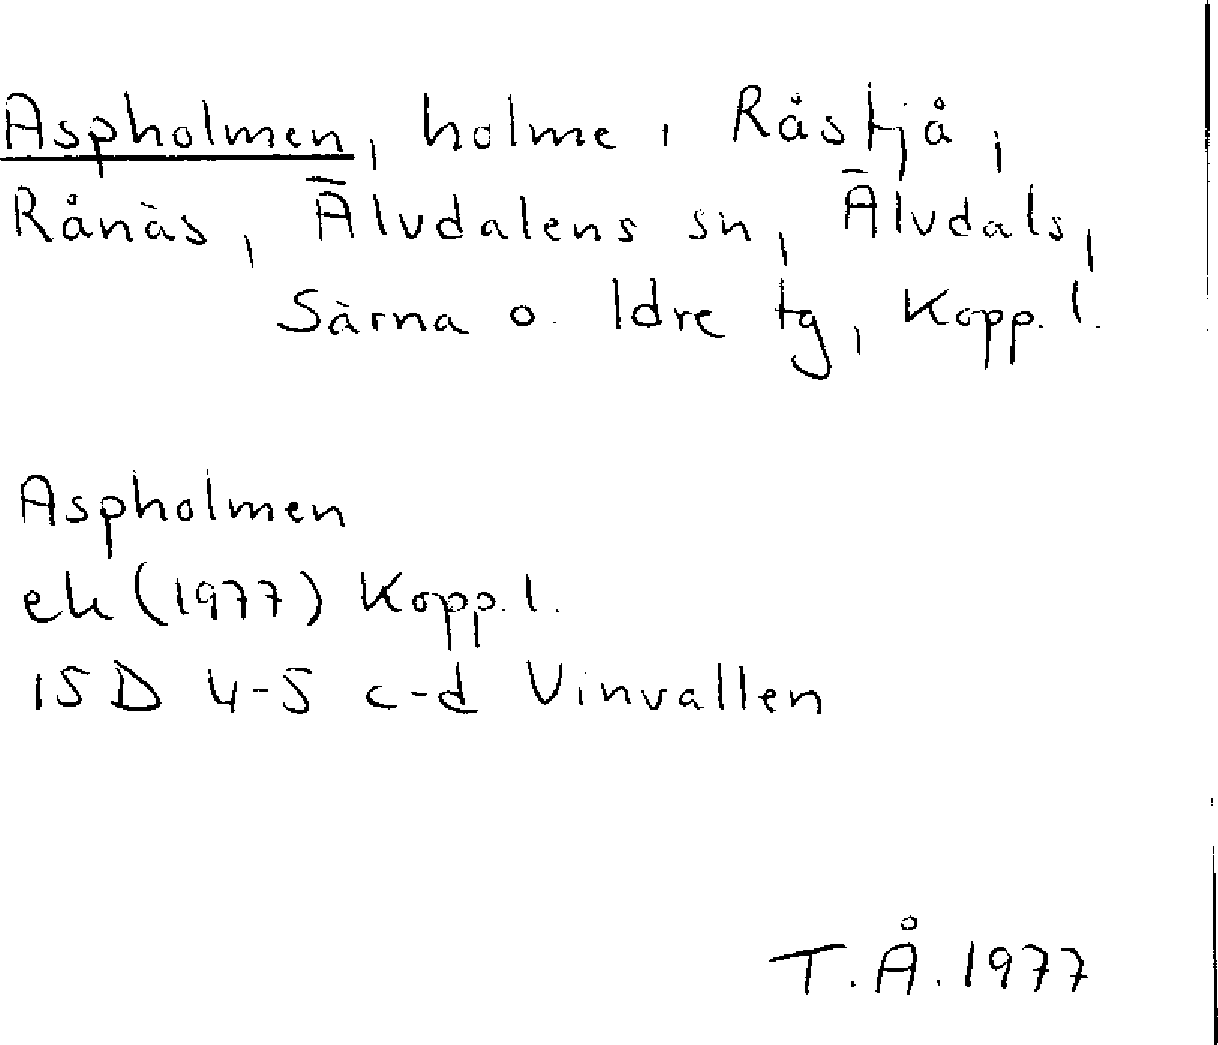 Aspholmen, holme i Råstjå,
Rånäs, Älvdalens sn, Älvdals,
Särna o. Idre tg, Kopp. l.
Aspholmen
ek (1977) Kopp. l.
15 D 4-5 c-d Vinvallen
T.Å. 1977